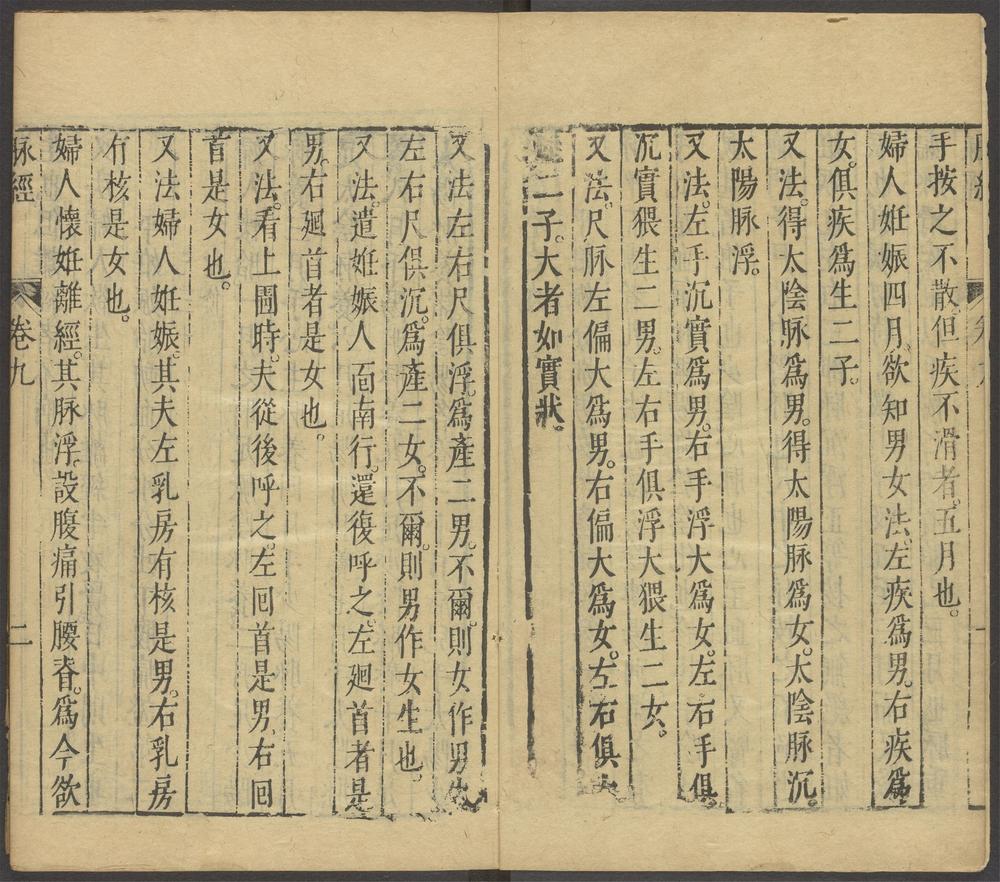 手按之不散但疾不滑者。五月也。
婦人妊娠四月、欲知男女法。左疾為男。右疾為
女。俱疾為生二子。
又法。得太陰脉為男。得太陽脉為女。太陰脉沉。
太陽脉浮。
又法。左手沉實為男。右手浮大為女。左右手俱
沉實猥生二男。左右手俱浮大猥生二女。
又法。尺脉左偏大為男。右偏大為女。左右俱大
產二子。大者如實狀。
又法左右尺俱浮。為產二男。不爾。則女作男生
左右尺俱沉。為產二女。不爾。則男作女生也。
又法。遣妊娠人面南行。還復呼之。左廻首者是
男。右廻首者是女也。
又法。看上圊時。夫從後呼之。左回首是男、右回
首是女也。
又法婦人妊娠。其夫左乳房有核是男。右乳房
有核是女也。
婦人懷妊離經。其脉浮。設腹痛引腰脊。為今欲
脉經 卷九 二